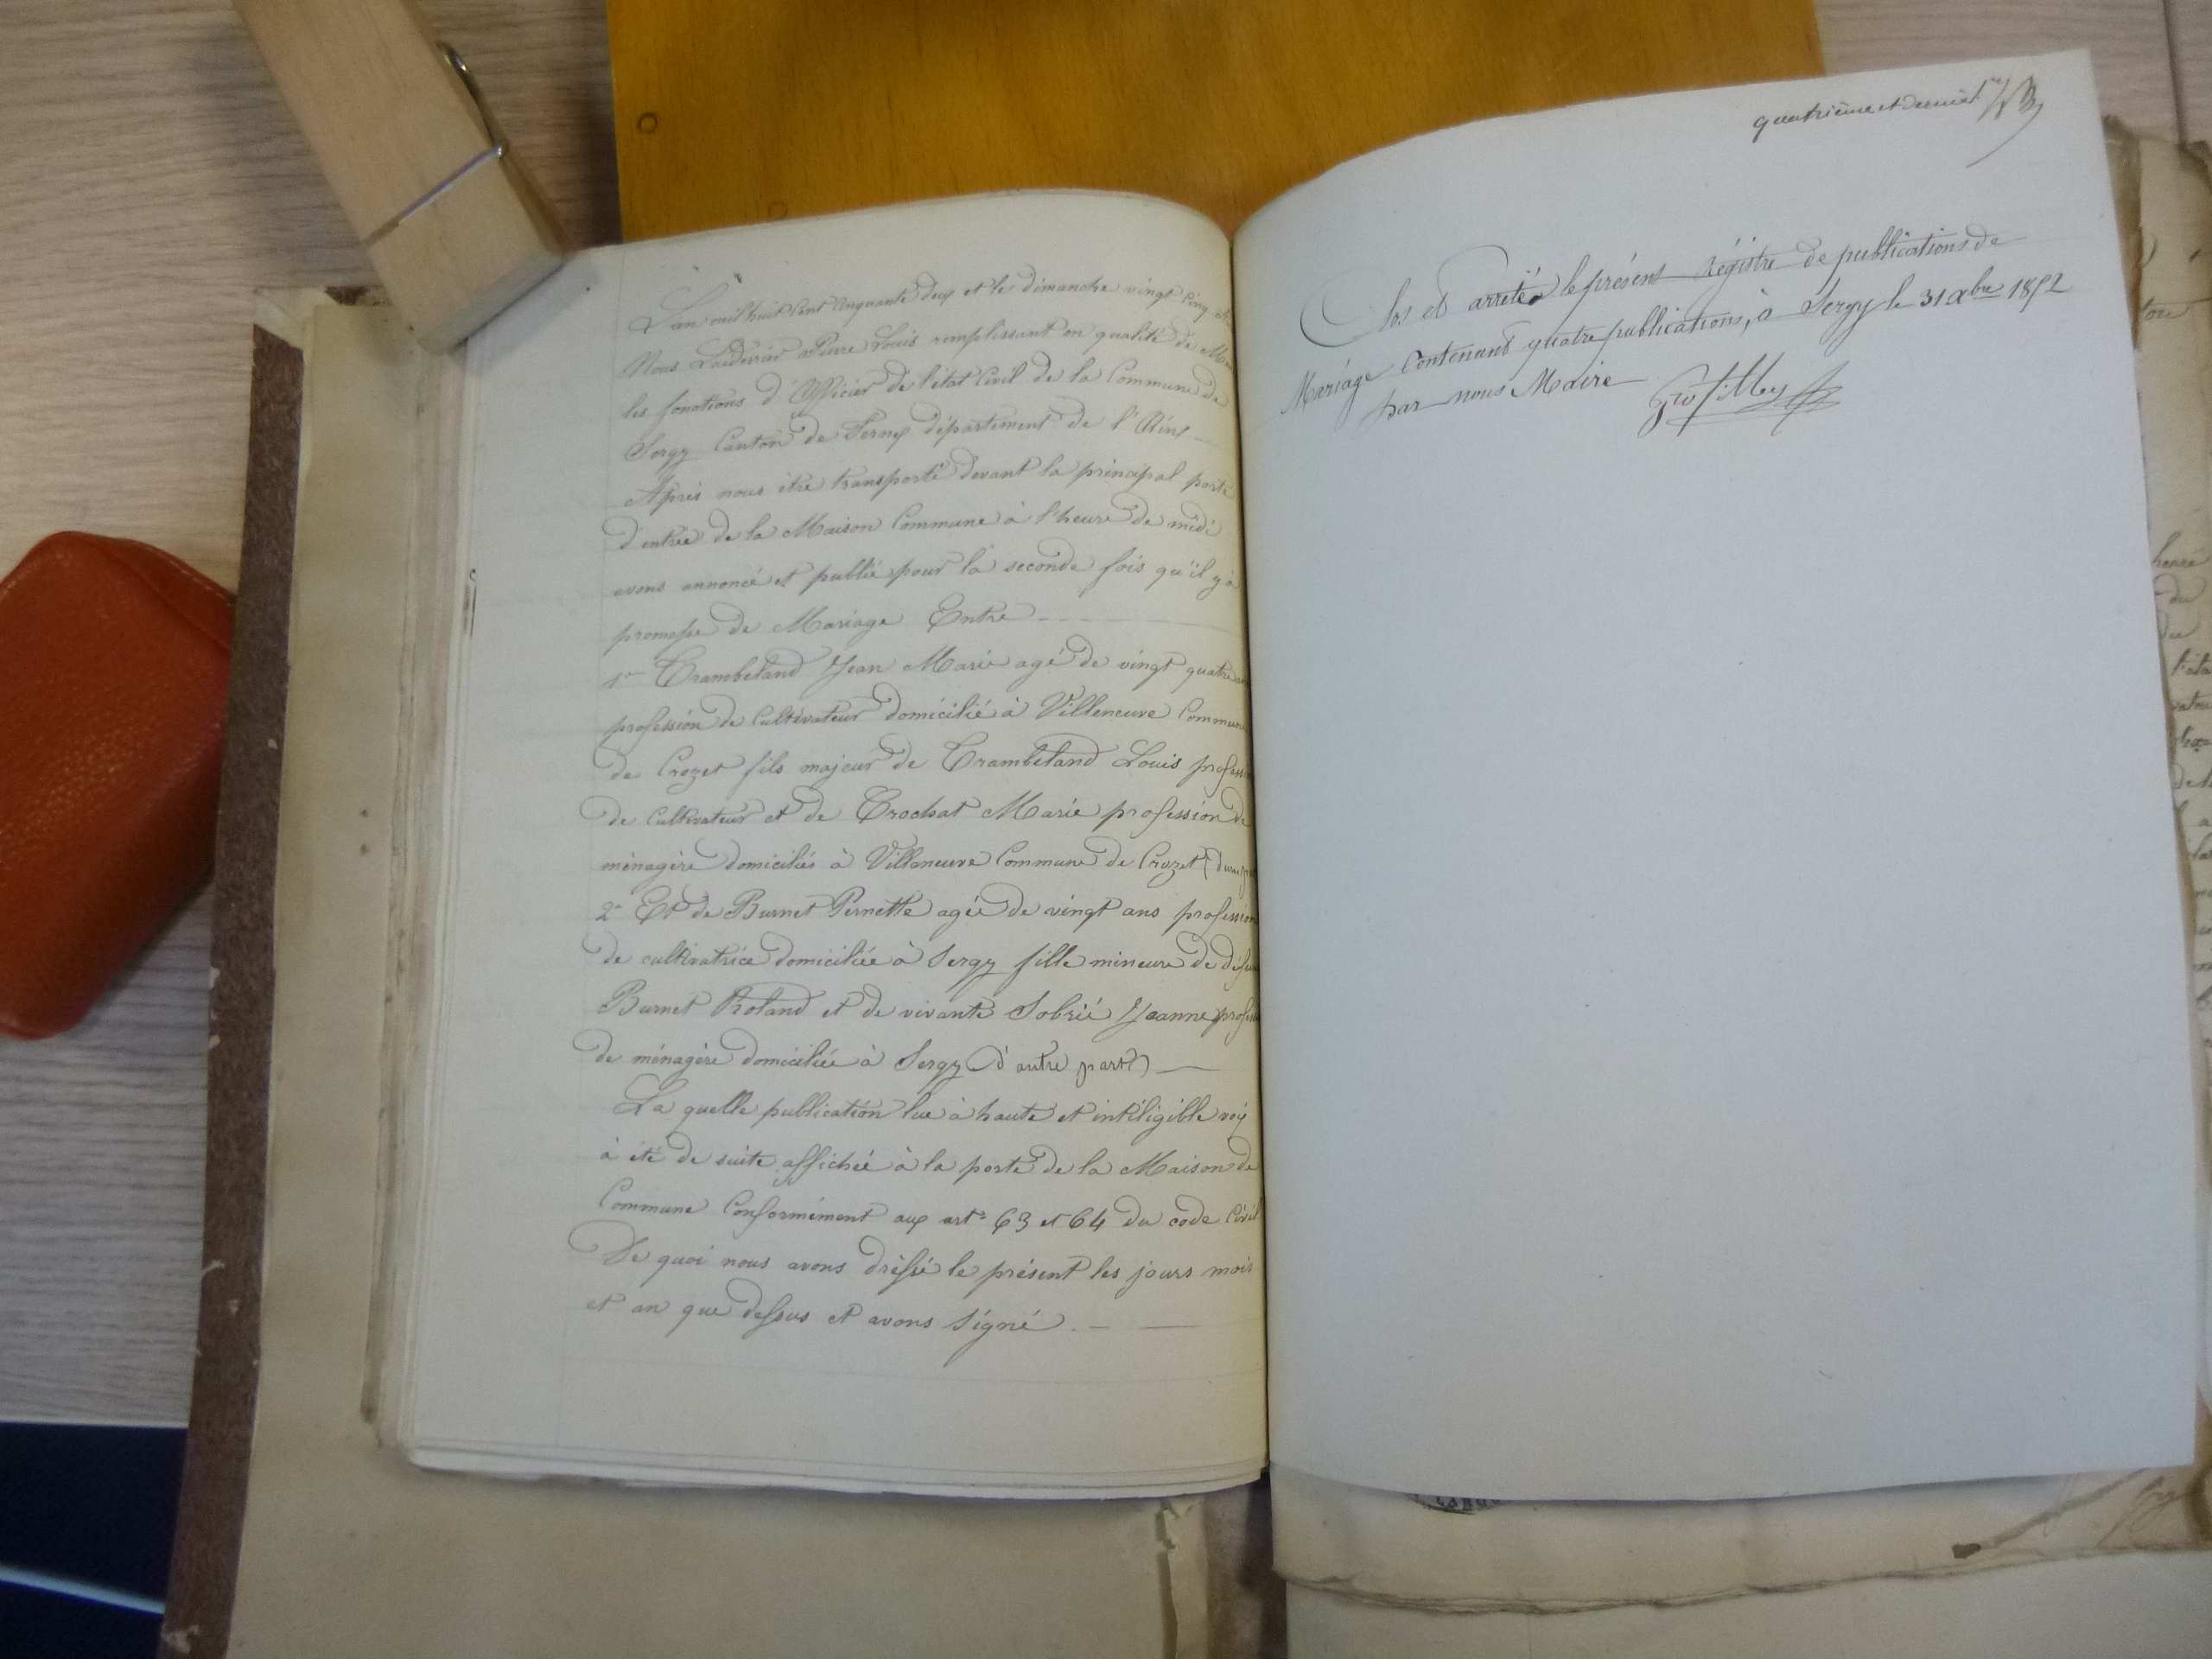 L'an mil huit Cent Cinquante deux et le dimanche vingt Cinq
Nous Pierre Louis remplissant en qualité de
les fonctions d'Officier de l'état Civil de la Commune de
Sergy Canton de Ferney département de l'Ain
Après nous être transporté devant la principal porte
d'entrée de la Maison Commune à l'heure de midi
avons annoncé et publié pour la seconde fois qu'il y à
promesse de Mariage Entre
1° Trambeland Jean Marie agé de vingt quatre
profession de Cultivateur domicilié à Villeneuve Commune
de Crozet fils majeur de Trambeland Louis profession
de Cultivateur et de Trochat Marie profession de
ménagère domiciliés à Villeneuve Commune de Crozet (d'une
2° Et de Burnet Pernette agée de vingt ans profession
de cultivatrice domiciliée à Sergy fille mineure de
Burnet Roland et de vivante Sobrié Jeanne
de ménagère domiciliée à Sergy (d'autre part)
La quelle publication lue à haute et intéligible voix
à été de suite affichée à la porte de la Maison de
Commune Conformément aux art. 63 et 64 du code Civil
De quoi nous avons dréssé le présent les jours mois
et an que dessus et avons signé
quatrième et dernier
Clos et arrêté le présent Régistre de publications de
Mariage Contenant quatre publications, à Sergy le 31 Xbre 1852
par nous Maire